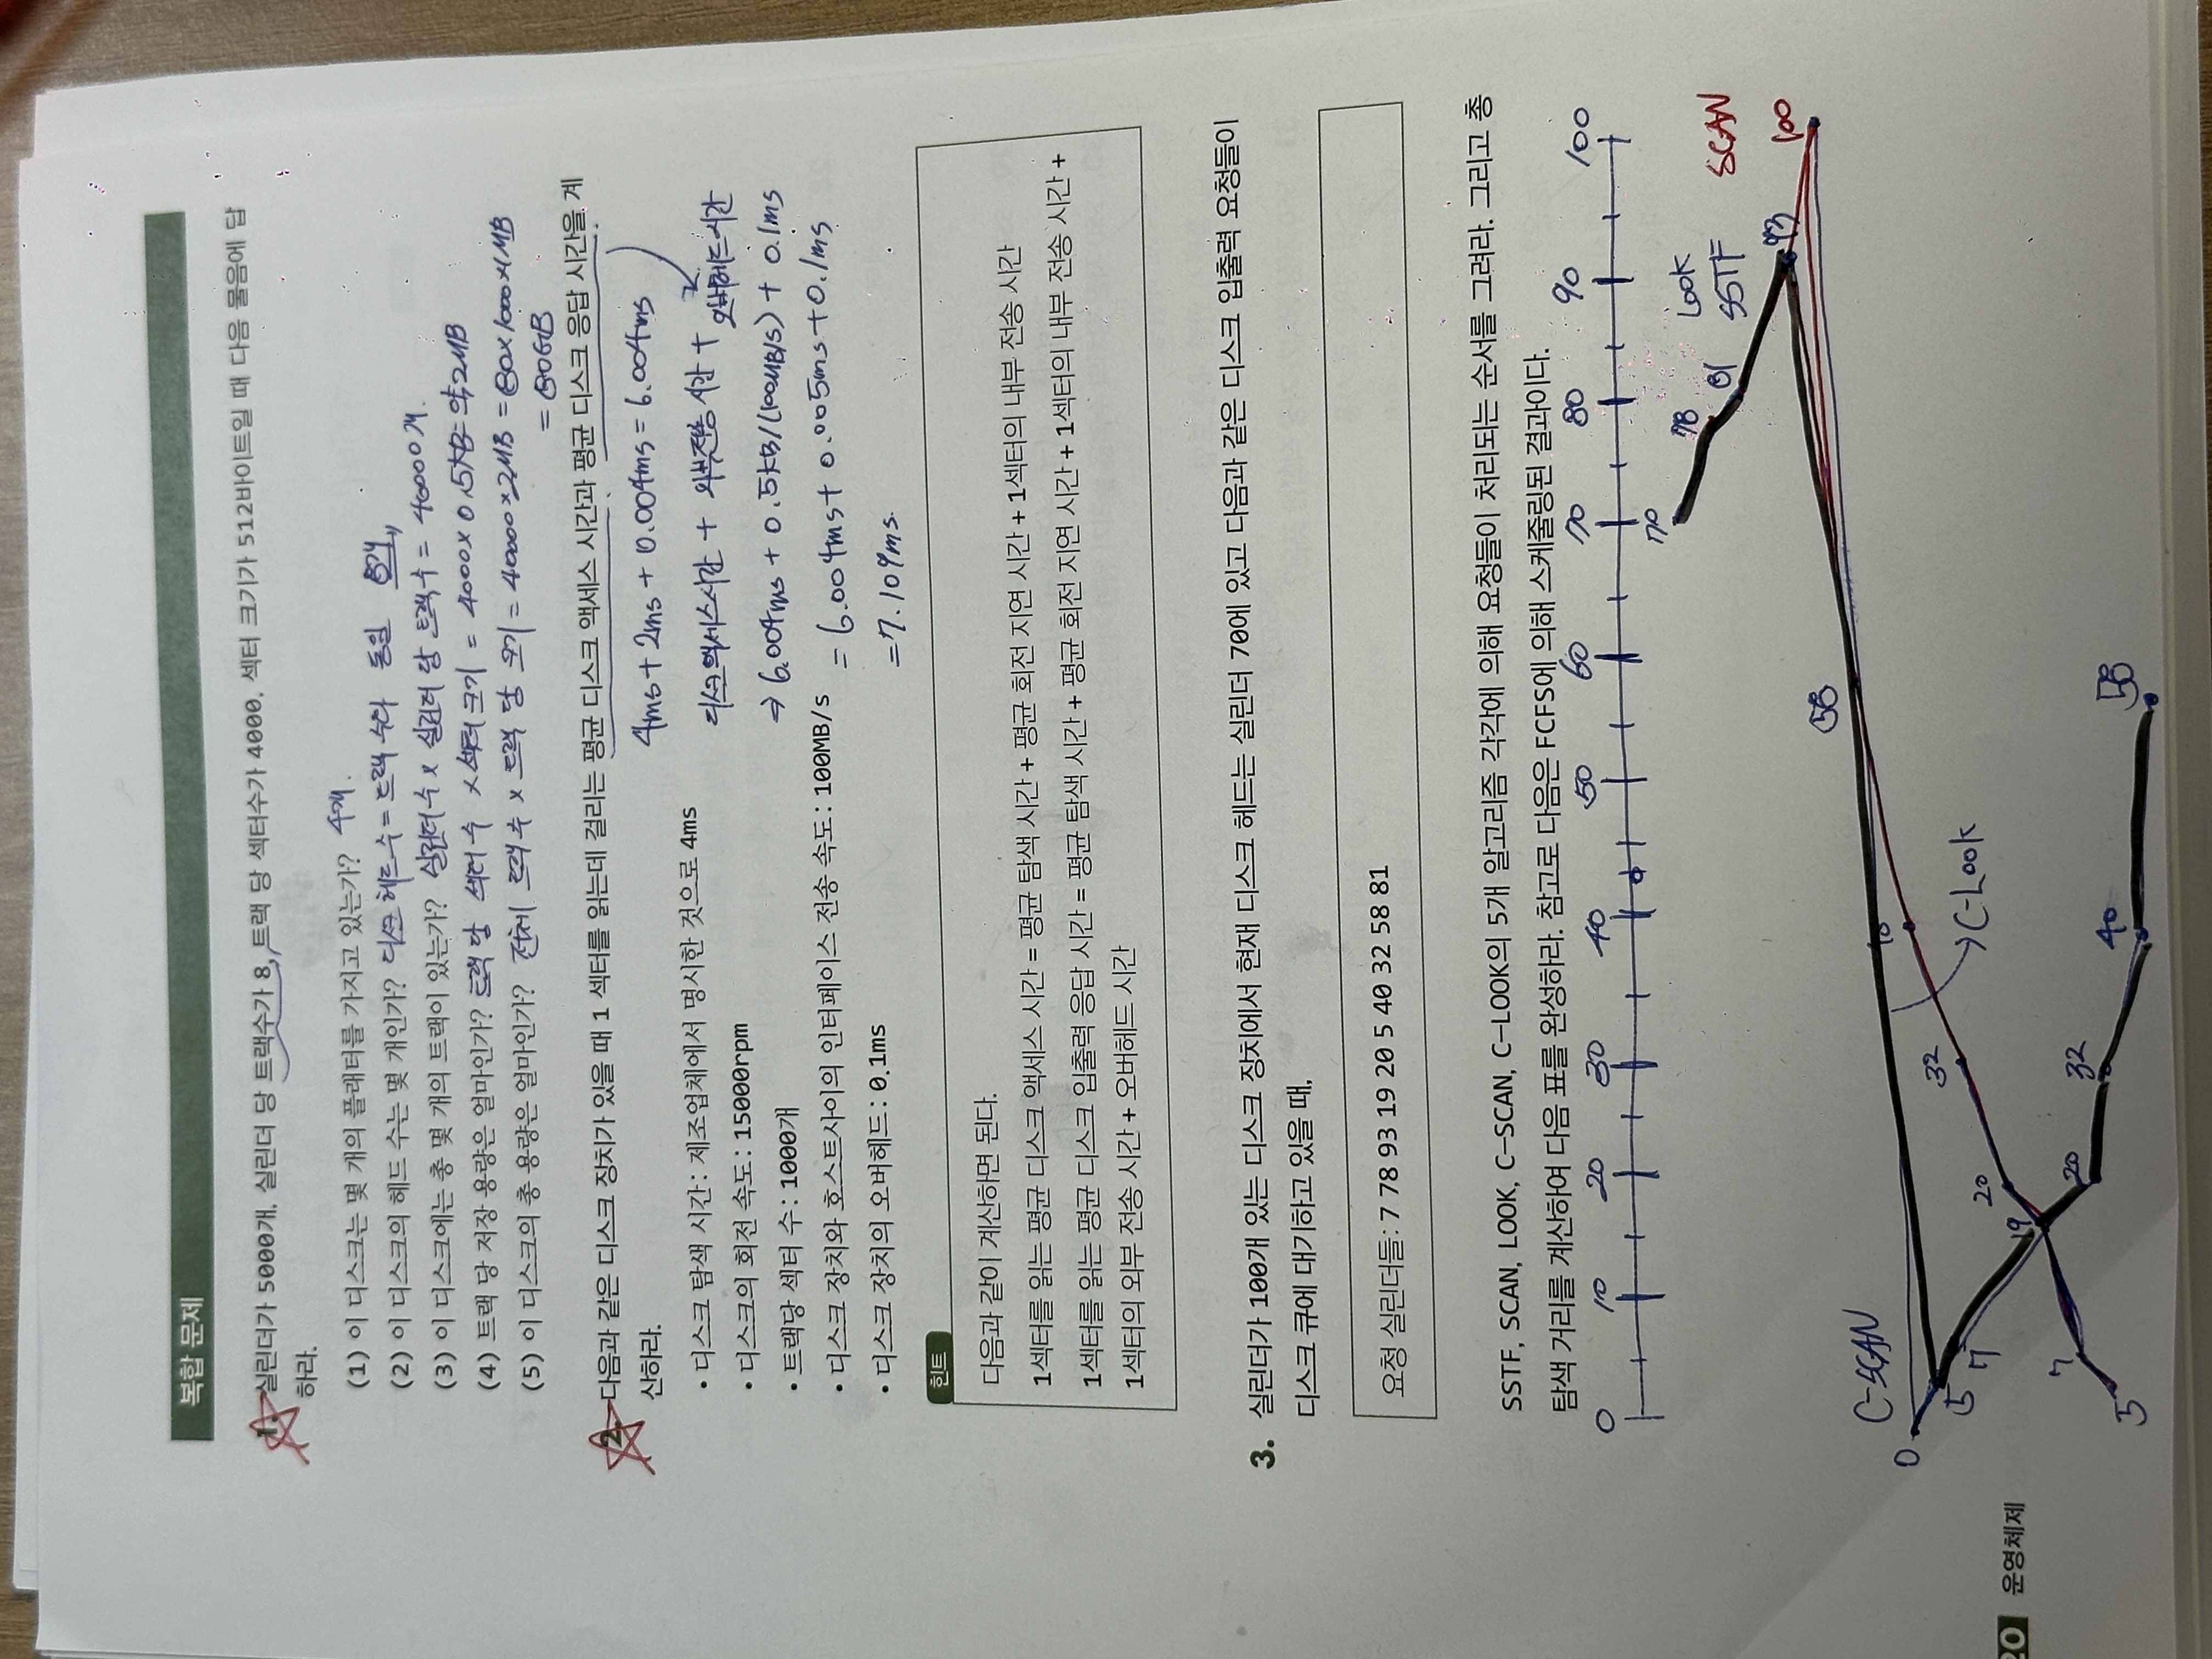 복합 문제
1. 실린더가 5000개, 실린더 당 트랙수가 8, 트랙 당 섹터수가 4000, 섹터 크기가 512바이트일 때 다음 물음에 답
하라.
(1) 이 디스크는 몇 개의 플래터를 가지고 있는가? 4개.
(2) 이 디스크의 헤드 수는 몇 개인가? 디스크 헤드 수 = 트랙 수와 동일 8개
(3) 이 디스크에는 총 몇 개의 트랙이 있는가? 실린더 수 x 실린더 당 트랙 수 = 40000개.
(4) 트랙 당 저장 용량은 얼마인가? 트랙 당 섹터 수 x 섹터 크기 = 4000 x 0.5KB = 약 2MB
(5) 이 디스크의 총 용량은 얼마인가? 전체 트랙 수 x 트랙 당 크기 = 40000 x 2MB = 80x1000x1MB
= 80GB
2. 다음과 같은 디스크 장치가 있을 때 1 섹터를 읽는데 걸리는 평균 디스크 액세스 시간과 평균 디스크 응답 시간을 계
산하라.
4ms + 2ms + 0.004ms = 6.004ms
• 디스크 탐색 시간: 제조업체에서 명시한 것으로 4ms
디스크액세스시간 + 외부전송 시간 + 오버헤드시간
• 디스크의 회전 속도: 15000rpm
⇒ 6.004ms + 0.5KB/(100MB/S) + 0.1ms
• 트랙당 섹터 수: 1000개
• 디스크 장치와 호스트사이의 인터페이스 전송 속도: 100MB/s
= 6.004ms + 0.005ms + 0.1ms
• 디스크 장치의 오버헤드: 0.1ms
= 7.109ms.
힌트
다음과 같이 계산하면 된다.
1섹터를 읽는 평균 디스크 액세스 시간 = 평균 탐색 시간 + 평균 회전 지연 시간 + 1섹터의 내부 전송 시간
1섹터를 읽는 평균 디스크 입출력 응답 시간 = 평균 탐색 시간 + 평균 회전 지연 시간 + 1섹터의 내부 전송 시간 +
1섹터의 외부 전송 시간 + 오버헤드 시간
3. 실린더가 100개 있는 디스크 장치에서 현재 디스크 헤드는 실린더 70에 있고 다음과 같은 디스크 입출력 요청들이
디스크 큐에 대기하고 있을 때,
요청 실린더들: 7 78 93 19 20 5 40 32 58 81
SSTF, SCAN, LOOK, C-SCAN, C-LOOK의 5개 알고리즘 각각에 의해 요청들이 처리되는 순서를 그려라. 그리고 총
탐색 거리를 계산하여 다음 표를 완성하라. 참고로 다음은 FCFS에 의해 스케줄링된 결과이다.
0 10 20 30 40 50 60 70 80 90 100
70
78 LOOK
81 SSTF SCAN
93 100
58
C-SCAN
0
32
5 C-LOOK
7
20
20 운영체제
19
7
20 32
5 40 58